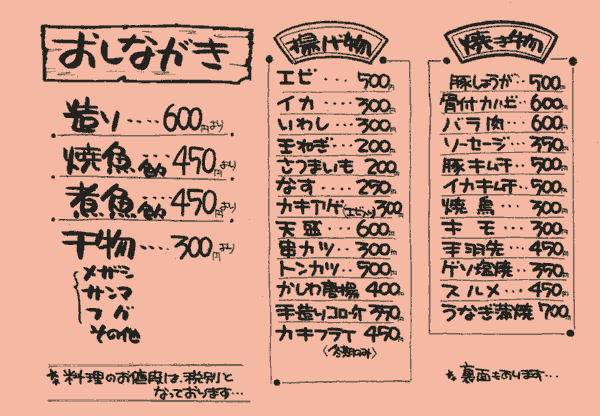 おしながき
造り‥‥600円より
焼魚‥450円より
煮魚‥450円より
干物‥‥300円より
メザシ
サンマ
フグ
その他
※料理のお値段は、税別と
なっております…
揚げ物
エビ‥‥500円
イカ‥‥300円
いわし‥‥300円
玉ねぎ‥‥200円
さつまいも 200円
なす‥‥250円
カキアゲ(エビ入り)300円
天盛‥‥600円
串カツ‥‥300円
トンカツ‥‥500円
かしわ唐揚 400円
手造りコロッケ 350円
カキフライ 450円
〈冬期のみ〉
焼き物
豚しょうが‥500円
骨付カルビ‥600円
バラ肉‥‥600円
ソーセージ‥350円
豚キムチ‥500円
イカキムチ‥500円
焼鳥‥‥300円
キモ‥‥300円
手羽先‥‥450円
ゲソ塩焼‥350円
スルメ‥‥450円
うなぎ蒲焼 700円
※裏面もあります…